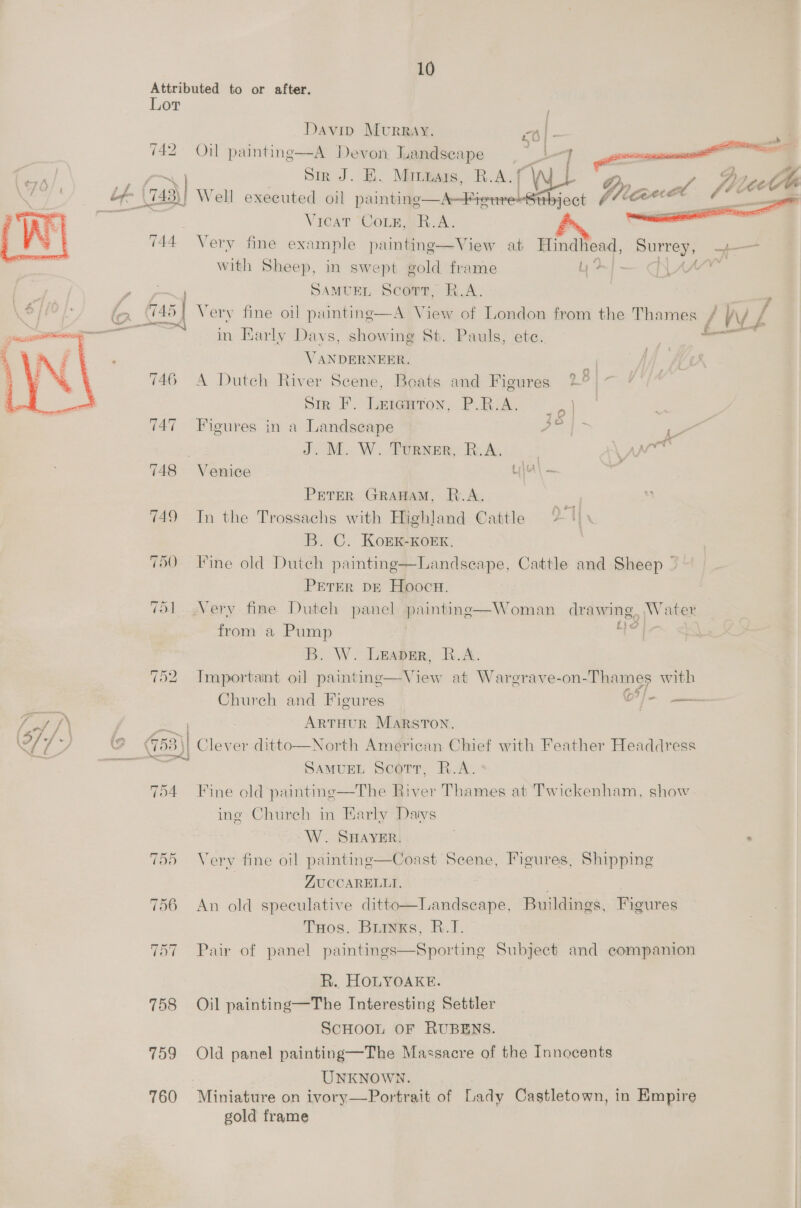 10
Attributed to or after.
Lot
David Murray.
742 Oil painting—A Devon Landscape
Sir J. E. Millais, R.A.
743 Well executed oil painting—A Figure Subject
Vicat Cole, R.A.
744 Very fine example painting—View at Hindhead, Surrey,
with Sheep, in swept gold frame
Samuel Scott, R.A.
745 Very fine oil painting—A View of London from the Thames
in Early Days, showing St. Pauls, etc.
Vanderneer.
746 A Dutch River Scene, Boats and Figures 28/-
Sir F. Leighton, P.R.A.
747 Figures in a Landscape 38/-
J. M. W. Turner, R.A.
748 Venice
Peter Graham, R.A.
749 In the Trossachs with Highland Cattle
B. C. Koek-koek.
750 Fine old Dutch painting—Landscape, Cattle and Sheep
Peter de Hooch.
751 Very fine Dutch panel painting—Woman drawing Water
from a Pump
B. W. Leader, R.A.
752 Important oil painting—View at Wargrave-on-Thames with
Church and Figures
Arthur Marston.
753 Clever ditto—North American Chief with Feather Headdress
Samuel Scott, R.A.
754 Fine old painting—The River Thames at Twickenham, show
ing Church in Early Days
W. Shayer.
755 Very fine oil painting—Coast Scene, Figures, Shipping
Zuccarelli.
756 An old speculative ditto—Landscape, Buildings, Figures
Thos. Blinks, R.I.
757 Pair of panel paintings—Sporting Subject and companion
R. Holyoake.
758 Oil painting—The Interesting Settler
School of Rubens.
759 Old panel painting—The Massacre of the Innocents
Unknown.
760 Miniature on ivory—Portrait of Lady Castletown, in Empire
gold frame